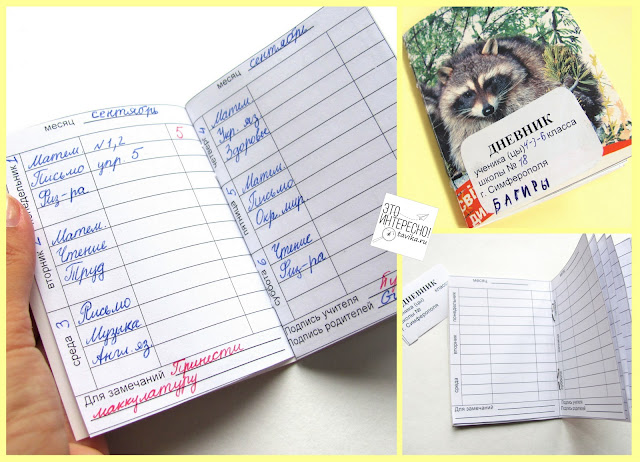 месяц сентябрь
понедельник 1
Матем N 1,2 5
Письмо упр 5
Физ-ра
вторник 2
Матем
Чтение
Труд
среда 3
Письмо
Музыка
Англ.яз.
Для замечаний Принести
маккулатуру
месяц сентябрь
четверг 4
Матем
Укр.яз
Здоровье
пятница 5
Матем
Письмо
Окр.мир
суббота 6
Чтение
Физ-ра
Подпись учителя
Подпись родителей
ЭТО
ИНТЕРЕСНО!
tavika.ru
ДНЕВНИК
ученика (цы) 4-Б класса
школы № 18
г. Симферополя
БАГИРЫ
ДНЕВНИК
ученика (цы) класса
школы №
Симферополя
месяц
понедельник
вторник
среда
Для замечаний
Подпись учителя
Подпись родителей